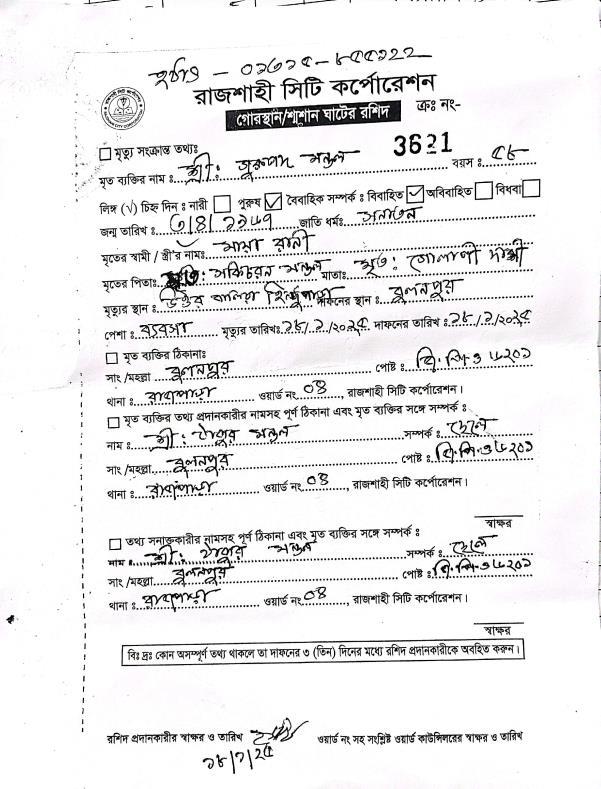 রাজশাহী সিটি কর্পোরেশন
গোরস্থান/শ্মশান ঘাটের রশিদ ক্রঃ নং-
3621
মৃত্যু সংক্রান্ত তথ্যঃ
মৃত ব্যক্তির নাম : শ্রী: গুরুপদ মন্ডল বয়স : ৫৮
লিঙ্গ (√) চিহ্ন দিন : নারী পুরুষ √ বৈবাহিক সম্পর্ক : বিবাহিত √ অবিবাহিত বিধবা
জন্ম তারিখ : জাতি ধর্মঃ সনাতন
মৃতের স্বামী / স্ত্রী'র নামঃ মায়া রানী
মৃতের পিতাঃ মৃত: মন্ডল মাতাঃ মৃত: গোলাপী দাসী
মৃত্যুর স্থান : উত্তর বালিয়া হিন্দুপাড়া দাফনের স্থান : বুলনপুর
পেশা : ব্যবসা মৃত্যুর তারিখঃ দাফনের তারিখ :
মৃত ব্যক্তির ঠিকানাঃ
সাং /মহল্লা বুলনপুর পোষ্ট : জি.পি.ও ৬২০১
থানা : রাজপাড়া ওয়ার্ড নং ০৪ রাজশাহী সিটি কর্পোরেশন।
মৃত ব্যক্তির তথ্য প্রদানকারীর নামসহ পূর্ণ ঠিকানা এবং মৃত ব্যক্তির সঙ্গে সম্পর্ক :
নাম : শ্রী: মন্ডল সম্পর্ক : ছেলে
সাং /মহল্লা বুলনপুর পোষ্ট : জি.পি.ও ৬২০১
থানা : রাজপাড়া ওয়ার্ড নং ০৪, রাজশাহী সিটি কর্পোরেশন।
স্বাক্ষর
তথ্য সনাক্তকারীর নামসহ পূর্ণ ঠিকানা এবং মৃত ব্যক্তির সঙ্গে সম্পর্ক :
নাম : শ্রী: মন্ডল সম্পর্ক : ছেলে
সাং /মহল্লা বুলনপুর পোষ্ট : জি.পি.ও ৬২০১
থানা : রাজপাড়া ওয়ার্ড নং ০৪ রাজশাহী সিটি কর্পোরেশন।
স্বাক্ষর
বিঃ দ্রঃ কোন অসম্পূর্ণ তথ্য থাকলে তা দাফনের ৩ (তিন) দিনের মধ্যে রশিদ প্রদানকারীকে অবহিত করুন।
রশিদ প্রদানকারীর স্বাক্ষর ও তারিখ ওয়ার্ড নং সহ সংশ্লিষ্ট ওয়ার্ড কাউন্সিলরের স্বাক্ষর ও তারিখ